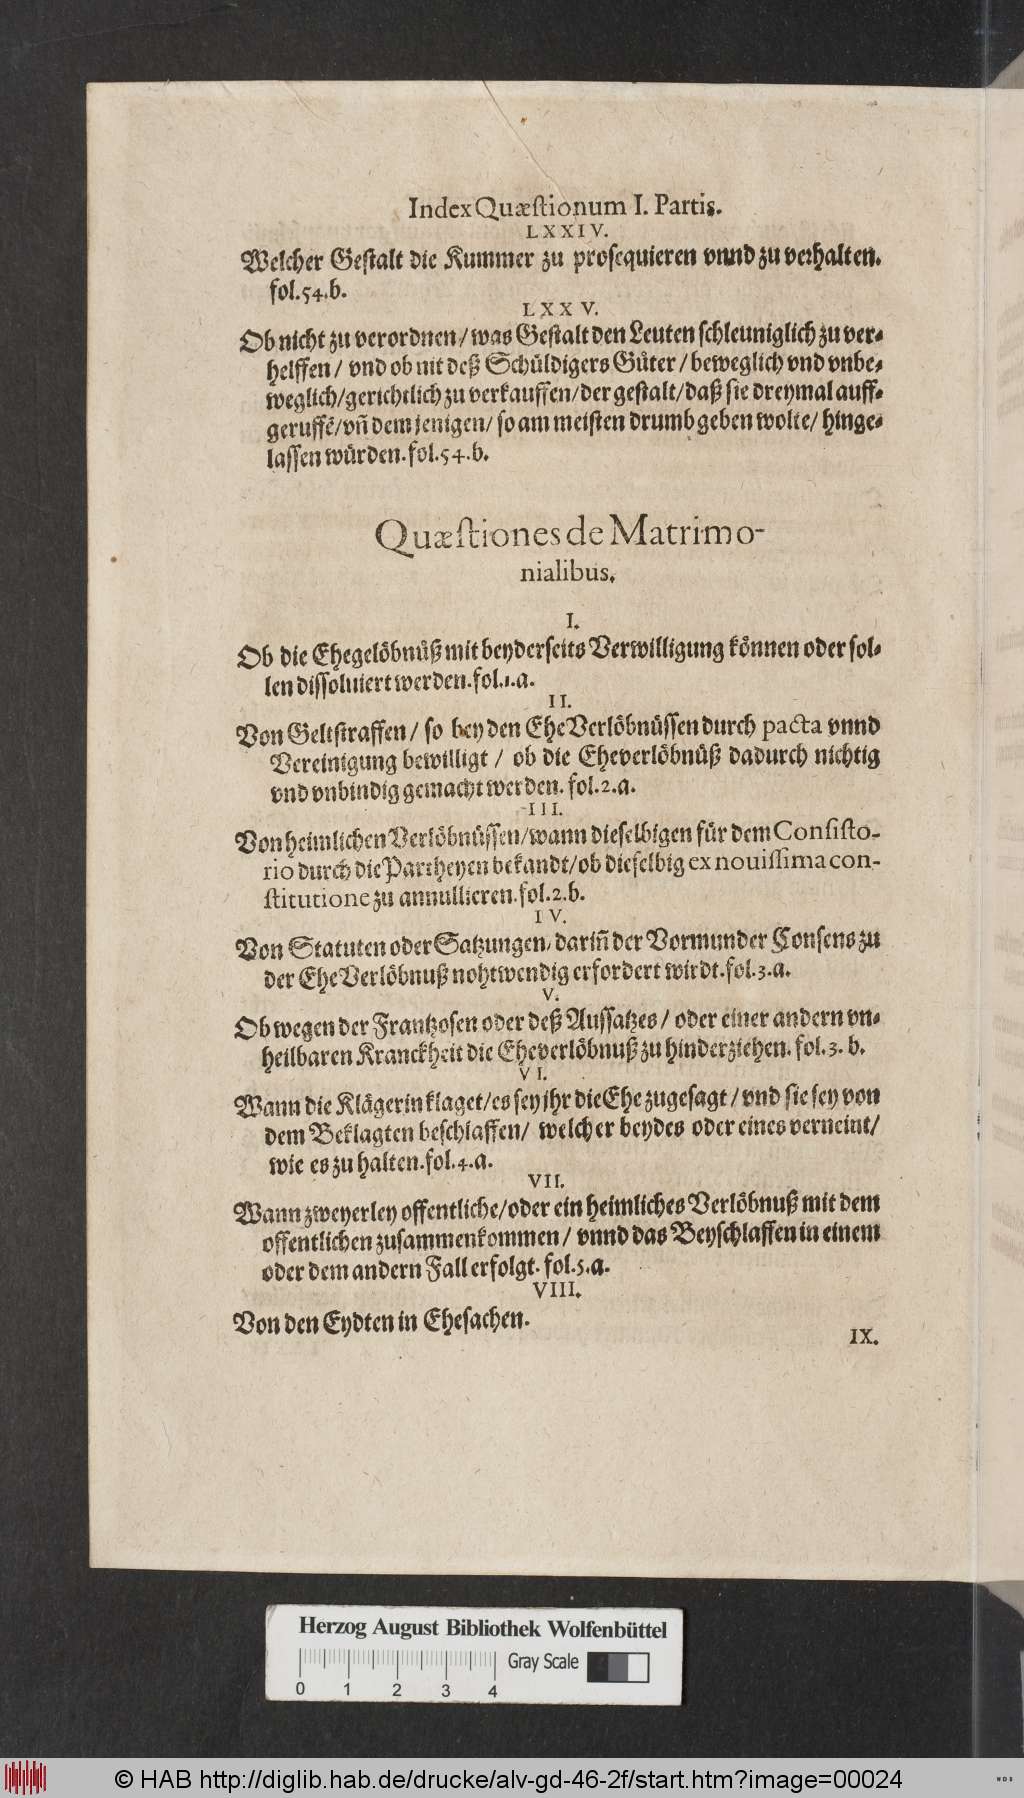 Index Quæſtionum I. Partis.
LXXIV.
Welcher Geſtalt die Kummer zu proſequieren vnnd zu verhalten.
fol.54.b.
LXXV.
Ob nicht zu verordnen/ was Geſtalt den Leuten ſchleuniglich zu ver-
helffen/ vnd ob nit deß Schuͤldigers Guͤter/ beweglich vnd vnbe-
weglich/ gerichtlich zu verkauffen/ der geſtalt/ daß ſie dreymal auff-
geruffẽ/ vñ dem jenigen/ ſo am meiſten drumb geben wolte/ hinge-
laſſen wuͤrden. fol.54.b.
Quæſtiones de Matrimo-
nialibus.
I.
Ob die Ehegeloͤbnuͤß mit beyderſeits Verwilligung koͤnnen oder ſol-
len diſſoluiert werden. fol.1.a.
II.
Von Geltſtraffen/ ſo bey den Ehe Verloͤbnuͤſſen durch pacta vnnd
Vereinigung bewilligt/ ob die Eheverloͤbnuͤß dadurch nichtig
vnd vnbindig gemacht werden. fol.2.a.
III.
Von heimlichen Verloͤbnuͤſſen/ wann dieſelbigen fuͤr dem Conſiſto-
rio durch die Partheyen bekandt/ ob dieſelbig ex nouiſſima con-
ſtitutione zu annullieren. fol.2.b.
IV.
Von Statuten oder Satzungen, dariñ der Vormunder Conſens zu
der Ehe Verloͤbnuß nohtwendig erfordert wirdt. fol.3.a.
V.
Ob wegen der Frantzoſen oder deß Auſſatzes/ oder einer andern vn-
heilbaren Kranckheit die Eheverloͤbnuß zu hinderziehen. fol.3.b.
VI.
Wann die Klaͤgerin klaget/ es ſey jhr die Ehe zugeſagt/ vnd ſie ſey von
dem Beklagten beſchlaffen/ welcher beydes oder eines verneint/
wie es zu halten. fol.4.a.
VII.
Wann zweyerley offentliche/ oder ein heimliches Verloͤbnuß mit dem
offentlichen zuſammenkommen/ vnnd das Beyſchlaffen in einem
oder dem andern Fall erfolgt. fol.5.a.
VIII.
Von den Eydten in Eheſachen.
IX.
Herzog August Bibliothek Wolfenbüttel
Gray Scale
0 1 2 3 4
© HAB http://diglib.hab.de/drucke/alv-gd-46-2f/start.htm?image=00024